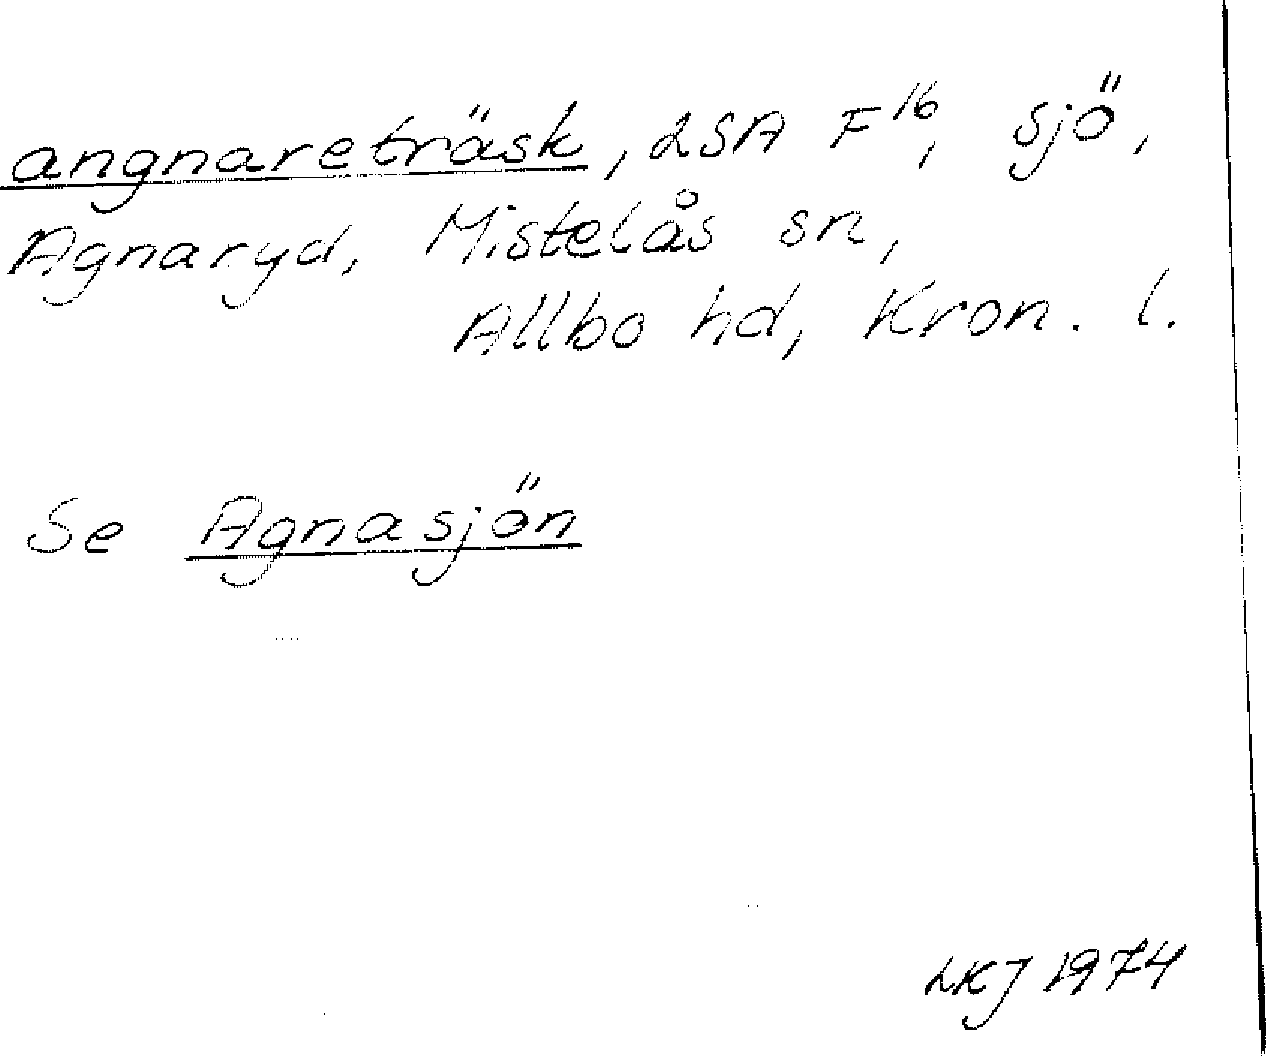 angnareträsk, LSA F16, sjö,
Agnaryd, Mistelås sn,
Allbo hd, Kron. l.
Se Agnasjön
LKJ 1974